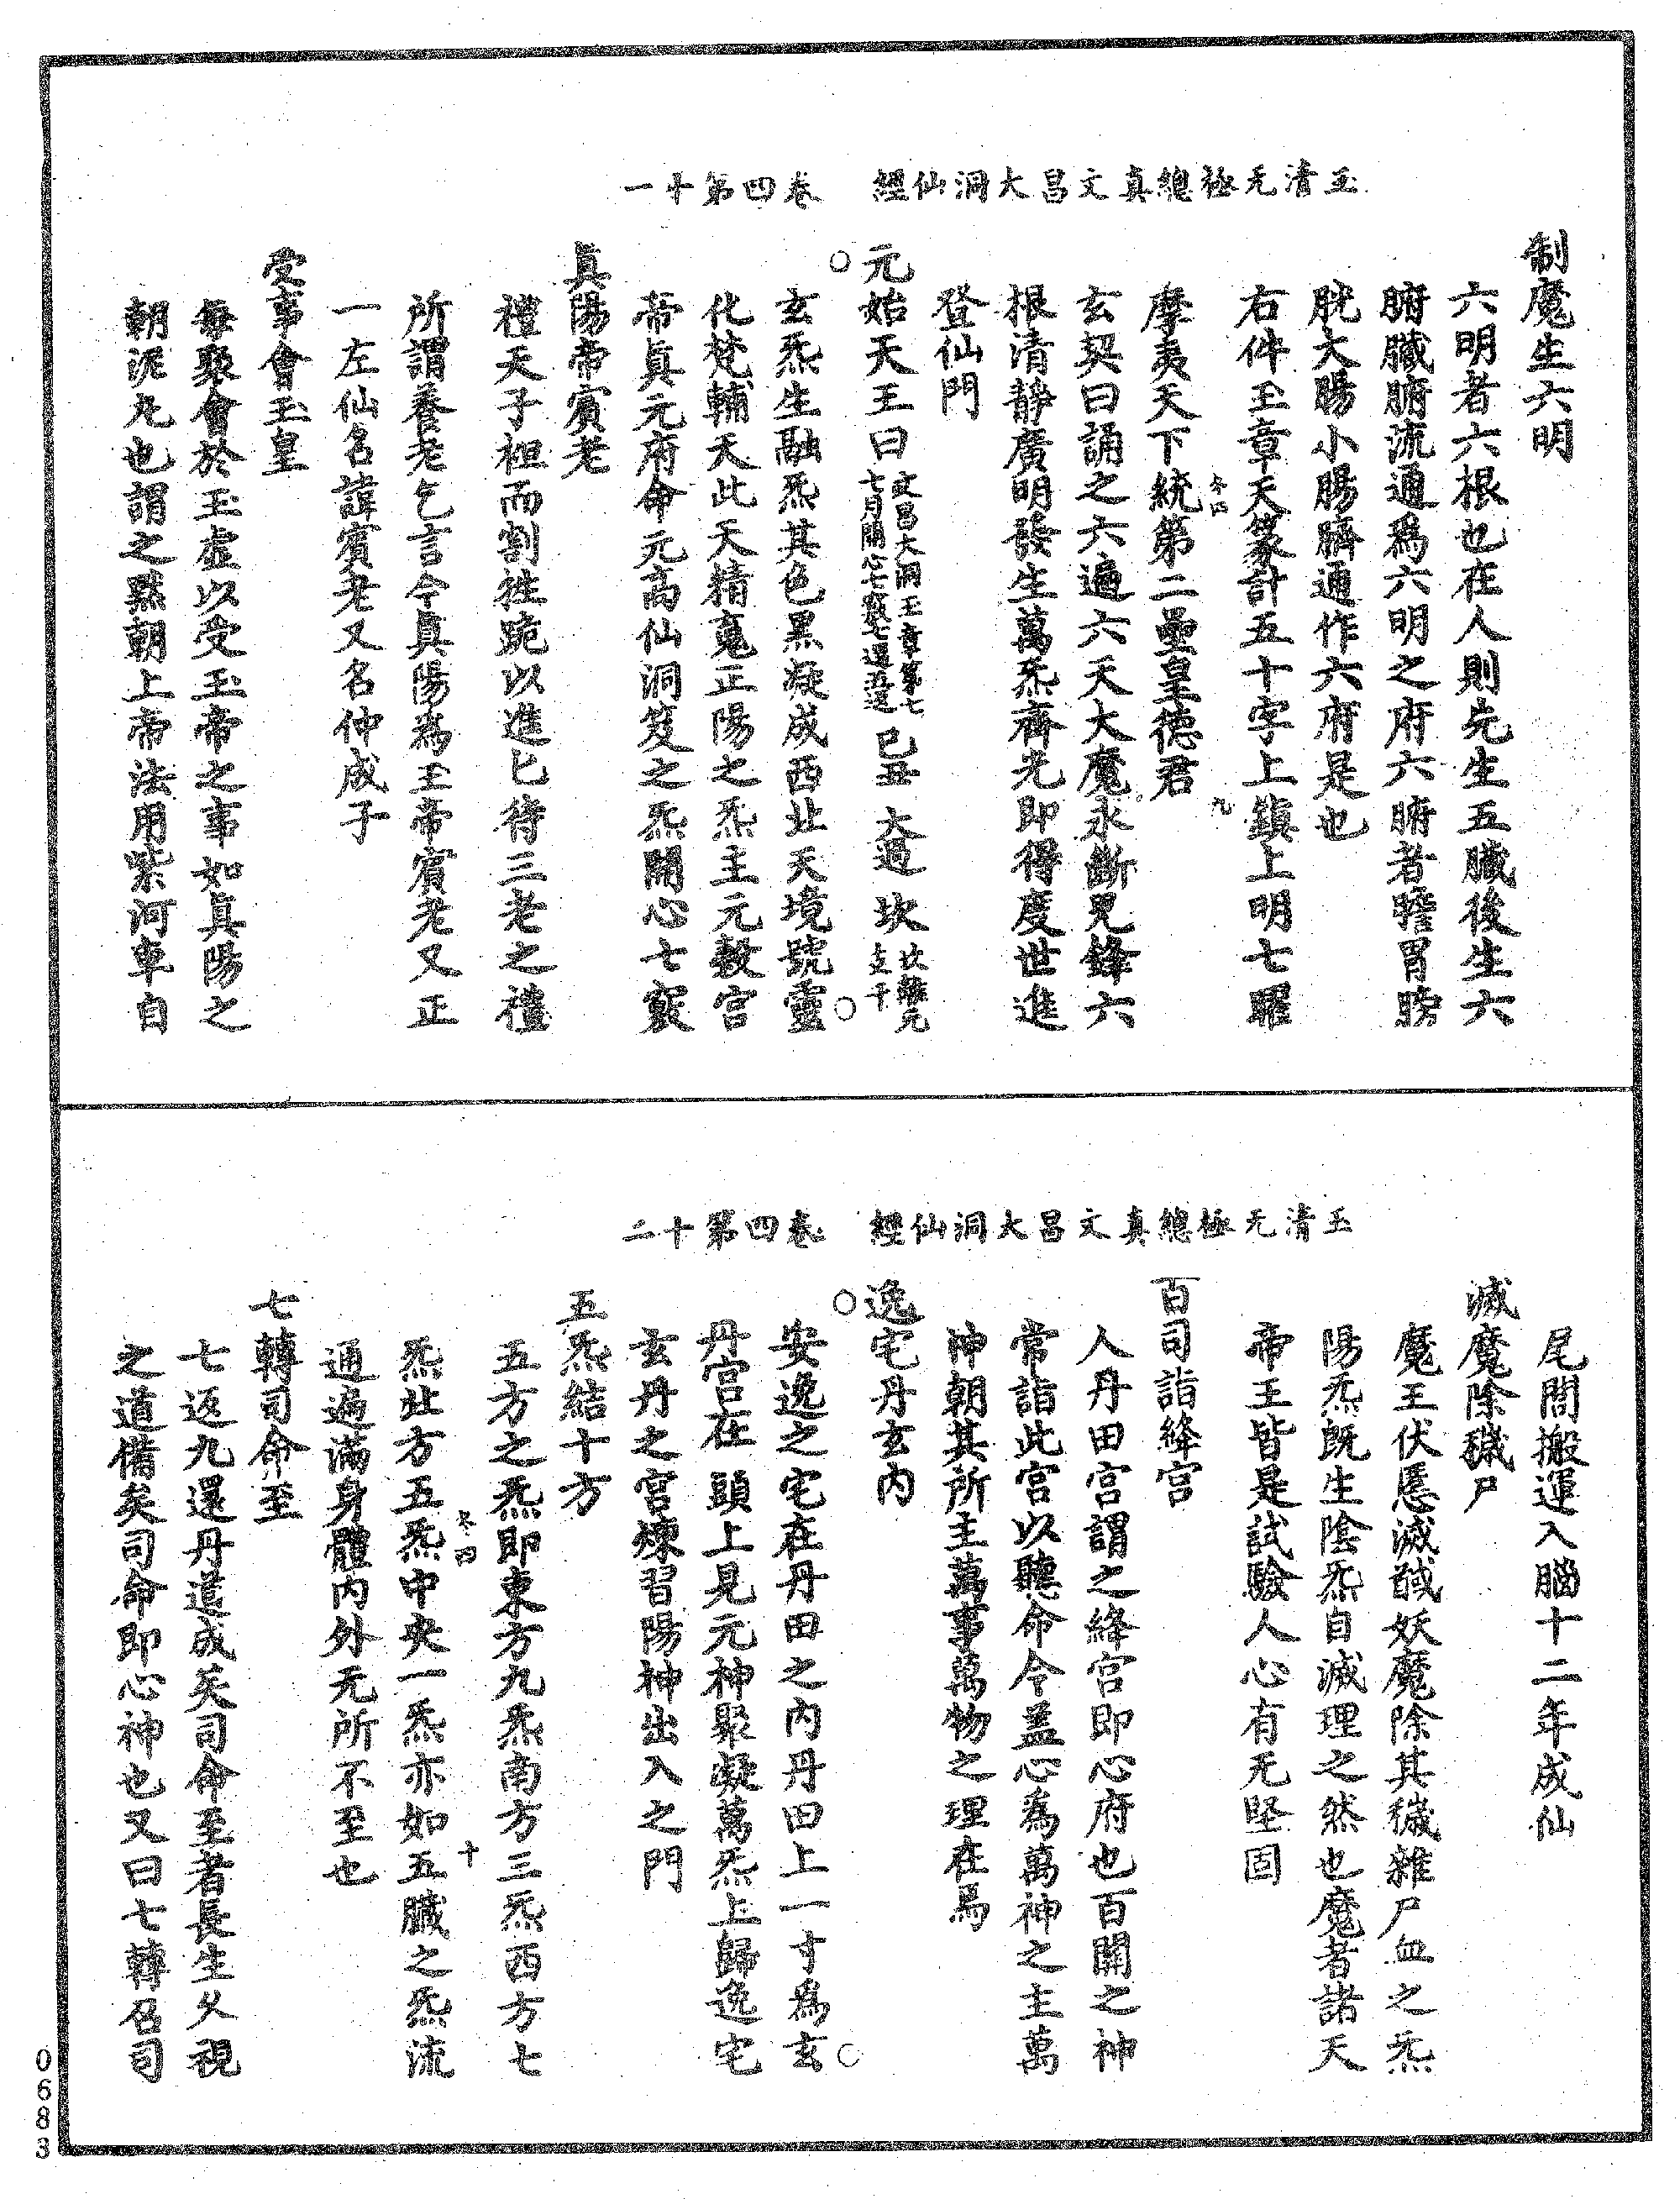 玉清无極總真文昌大洞仙經　卷四第十一
制魔生六明
六明者六根也在人則先生五臟後生六
腑臟腑流通爲六明之府六腑者膽胃膀
胱大腸小腸臍通作六府是也
右件玉章天篆計五十字上鎮上明七曜
摩夷天下統第二壘皇德君
玄契曰誦之六遍六天大魔永斷兇鋒六
根清靜廣明發生萬炁齊光即得度世進
登仙門
元始天王曰文昌大洞玉章第七七月開心七竅七遍通道己丑大過坎坎離元
玄炁生融炁其色黑凝成西北天境號靈
化梵輔天此天精嵬正陽之炁主元敷宮
帝真元府命元高仙洞笈之炁開心七竅
真陽帝賓老
禮天子袒而割牲跪以進匕待三老之禮
所謂養老乞言今真陽為玉帝賓老又正
一左仙名諱賓老又名仲成子
受事會玉皇
每聚會於玉虛以受玉帝之事如真陽之
朝泥丸也謂之默朝上帝法用紫河車自
玉清无極總真文昌大洞仙經　卷四第十二
尾閭搬運入腦十二年成仙
滅魔除穢尸
魔王伏慝滅馘妖魔除其穢雜尸血之炁
陽炁既生陰炁自滅理之然也魔者諸天
帝王皆是試驗人心有无堅固
百司詣絳宮
人丹田宮謂之絳宮即心府也百關之神
常詣此宮以聽命令蓋心為萬神之主萬
神朝其所主萬事萬物之理在焉
逸宅丹玄內
安逸之宅在丹田之內丹田上一寸為玄
丹宮在頭上見元神聚凝萬炁上歸逸宅
玄丹之宮煉習陽神出入之門
五炁結十方
五方之炁即東方九炁南方三炁西方七
炁北方五炁中央一炁亦如五臟之炁流
通遍滿身體內外无所不至也
七轉司命至
七返九還丹道成矣司命至者長生久視
之道備矣司命即心神也又曰七轉召司
0683